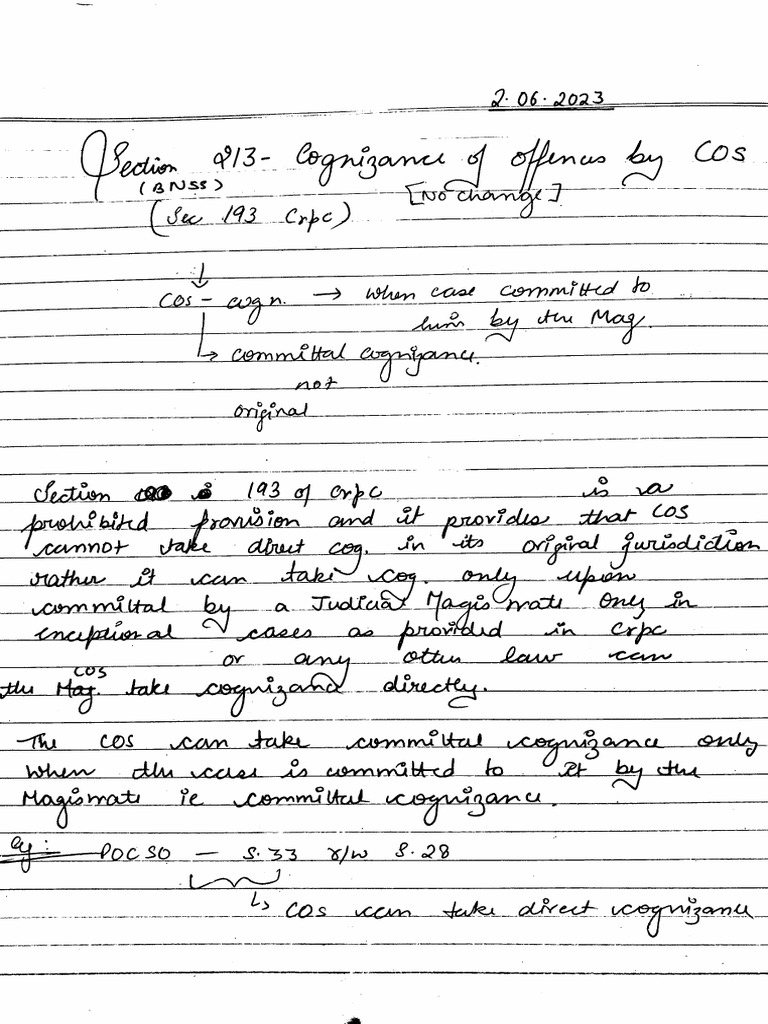 2.06.2023
Section 213 - Cognizance of offences by COS
(BNSS) [No change]
(Sec 193 Crpc)
COS - cogn. → when case committed to
him by the Mag.
↳ committal cognizance.
not
original
Section is 193 of crpc is a
prohibited provision and it provides that COS
cannot take direct cog. in its original jurisdiction
rather it can take cog. only upon
committal by a Judicial Magistrate only in
exceptional cases as provided in crpc
or any other law can
the COS take cognizance directly.
The COS can take committal cognizance only
when the case is committed to it by the
Magistrate ie committal cognizance.
eg: POCSO - S.33 r/w S.28
↳ COS can take direct cognizance